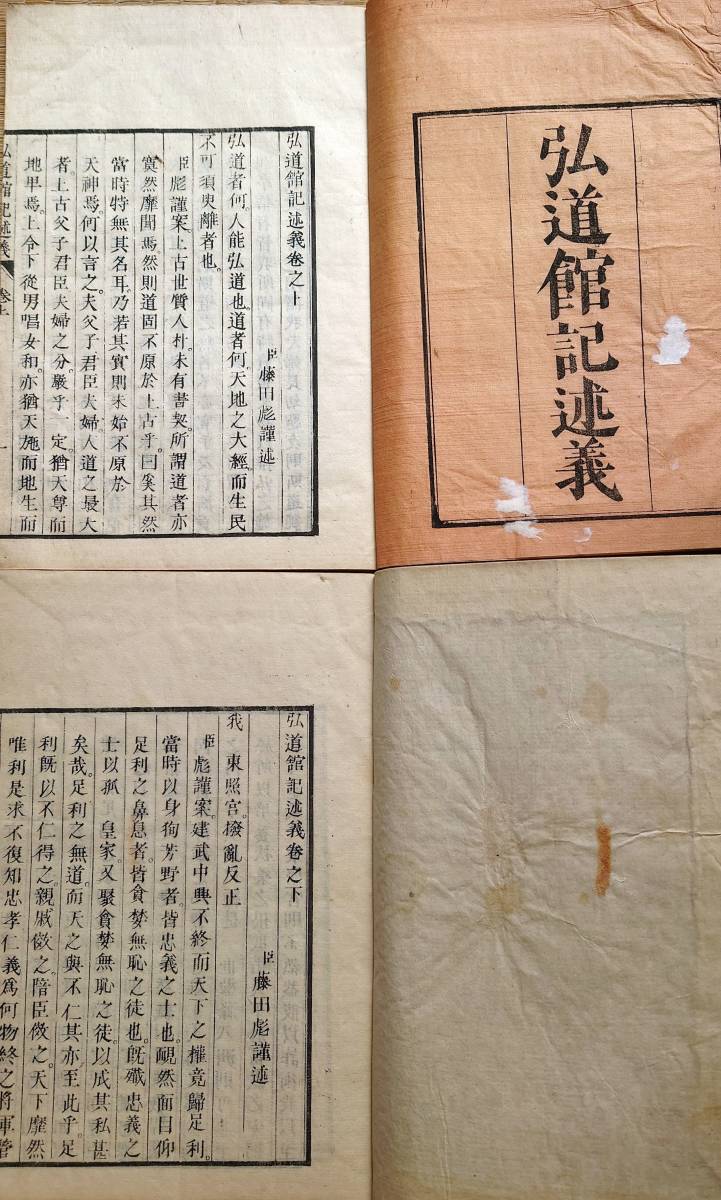 弘道館記述義
弘道館記述義卷之上
臣藤田彪謹述
弘道者何。人能弘道也。道者何。天地之大經。而生民
不可須臾離者也。
臣彪謹案。上古世質人朴。未有書契。所謂道者亦
寞然靡聞焉。然則道固不原於上古乎。曰奚其然。
當時特無其名耳。乃若其實則未始不原於
天神焉。何以言之。夫父子君臣夫婦。人道之最大
者。上古父子君臣夫婦之分。嚴乎一定。猶天尊而
地卑焉。上令下從。男唱女和。亦猶天施而地生。而
弘道館記述義
卷上
一
弘道館記述義卷之下
臣藤田彪謹述
我 東照宮。撥亂反正
臣彪謹案。建武中興不終。而天下之權竟歸足利。
當時以身徇芳野者。皆忠義之士也。靦然面目仰
足利之鼻息者。皆貪婪無恥之徒也。既殲忠義之
士以孤 皇家。又聚貪婪無恥之徒。以成其私。甚
矣哉。足利之無道。而天之與不仁。其亦至此乎。足
利既以不仁得之。親戚傚之。陪臣傚之。天下靡然
唯利是求。不復知忠孝仁義爲何物。終之將軍管